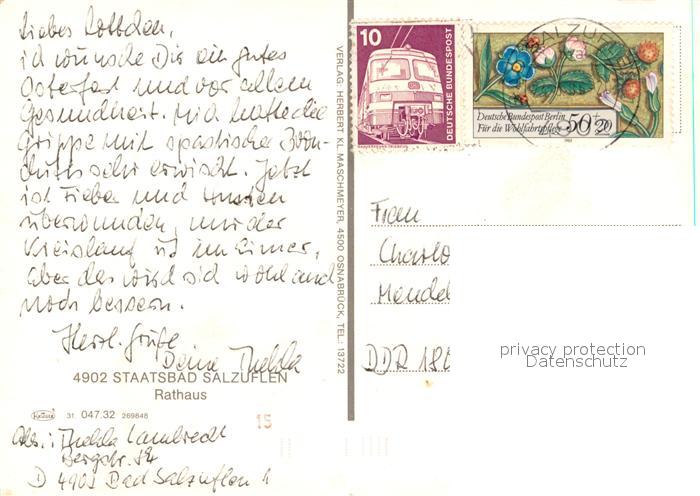 Liebes Lottchen,
ich wünsche Dir ein gutes
Osterfest und vor allem
Gesundheit. Mich hatte die
Grippe mit spastischer Bron-
chitis sehr erwischt. Jetzt
ist Fieber und Husten
überwunden, nur der
Kreislauf ist im Eimer,
aber das wird sich wohl auch
noch bessern.
Herzl. Grüße
Deine Thekla
4902 STAATSBAD SALZUFLEN
Rathaus
Krüger 31. 047.32 269848
15
Abs.: Thekla Lambrecht
Bergstr.
D 4902 Bad Salzuflen 1
VERLAG: HERBERT KL. MASCHMEYER, 4500 OSNABRÜCK, TEL.: 13722
10
DEUTSCHE BUNDESPOST
SALZUFLEN
Deutsche Bundespost Berlin
Für die Wohlfahrtspflege 50+20
1985
Frau
Charlo
Mendel
DDR 18
privacy protection
Datenschutz